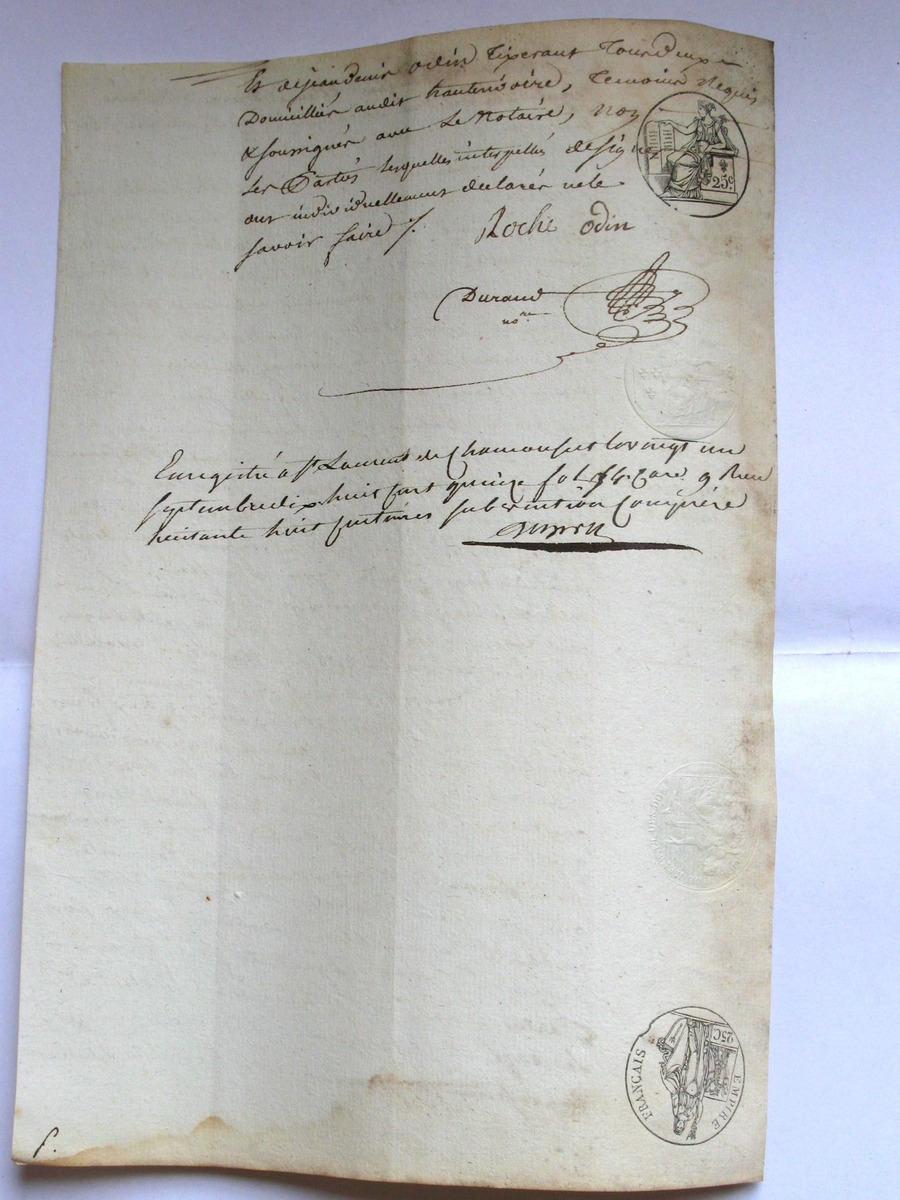 Et de jean denis odin tixerant Tous deux
Domiciliés audit hauterivoire, Temoins requis
& soussignés avec Le Notaire, non
Les Parties lesquelles interpellés de signer
ont individuellement declarés ne le
savoir faire /.
Roche odin
Durand
nore
25c.
Enregistré a St Laurent de Chamousset le vingt un
septembre dix huit cent quinze fol. 54 Reçu
huitante huit centimes subvention comprise
25C
EMPIRE
FRANCAIS